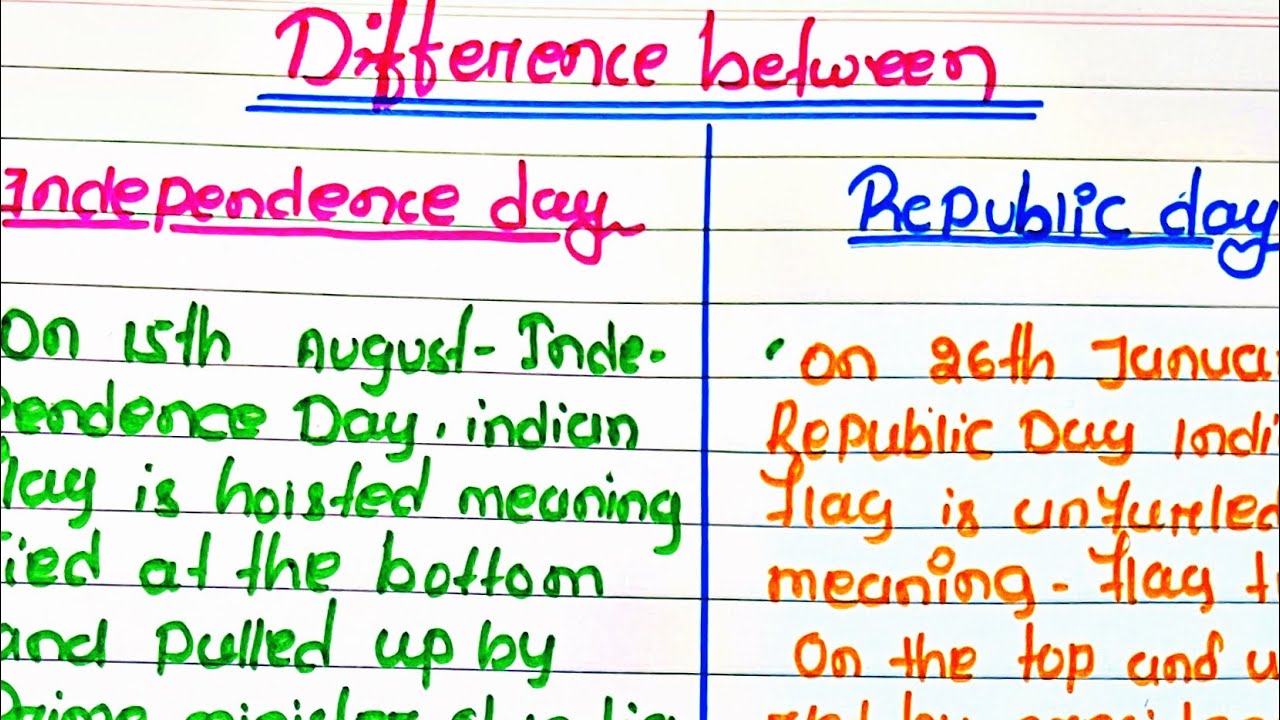 Difference between
Independence day
Republic day
On 15th August - Inde-
pendence Day. indian
flag is hoisted meaning
Tied at the bottom
and pulled up by
Prime minister
• On 26th
Republic Day
flag is
meaning - flag
On the top and
by